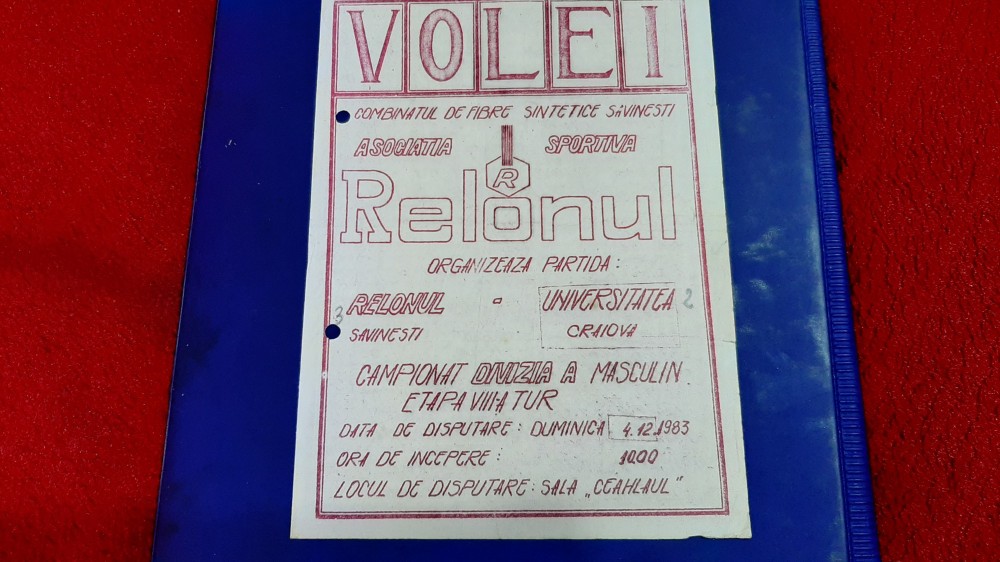 VOLEI
COMBINATUL DE FIBRE SINTETICE SĂVINESTI
ASOCIATIA SPORTIVA
R
Relonul
ORGANIZEAZA PARTIDA:
3 RELONUL - UNIVERSITATEA 2
SAVINESTI CRAIOVA
CAMPIONAT DIVIZIA A MASCULIN
ETAPA VIII-A TUR
DATA DE DISPUTARE: DUMINICA 4.12.1983
ORA DE INCEPERE: 10.00
LOCUL DE DISPUTARE: SALA „CEAHLAUL"